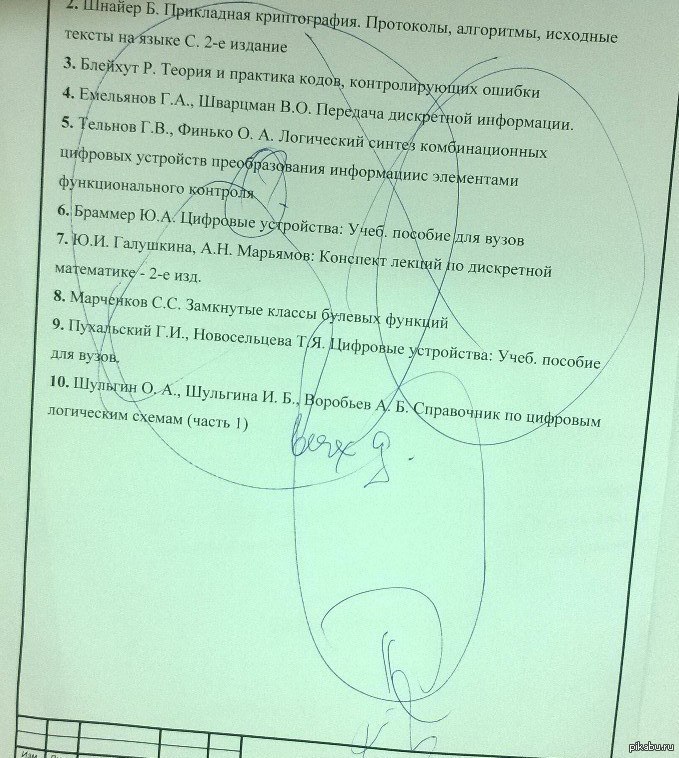 2. Шнайер Б. Прикладная криптография. Протоколы, алгоритмы, исходные
тексты на языке С. 2-е издание
3. Блейхут Р. Теория и практика кодов, контролирующих ошибки
4. Емельянов Г.А., Шварцман В.О. Передача дискретной информации.
5. Тельнов Г.В., Финько О. А. Логический синтез комбинационных
цифровых устройств преобразования информациис элементами
функционального контроля
6. Браммер Ю.А. Цифровые устройства: Учеб. пособие для вузов
7. Ю.И. Галушкина, А.Н. Марьямов: Конспект лекций по дискретной
математике - 2-е изд.
8. Марченков С.С. Замкнутые классы булевых функций
9. Пухальский Г.И., Новосельцева Т.Я. Цифровые устройства: Учеб. пособие
для вузов.
10. Шульгин О. А., Шульгина И. Б., Воробьев А. Б. Справочник по цифровым
логическим схемам (часть 1)
Изм
pikabu.ru